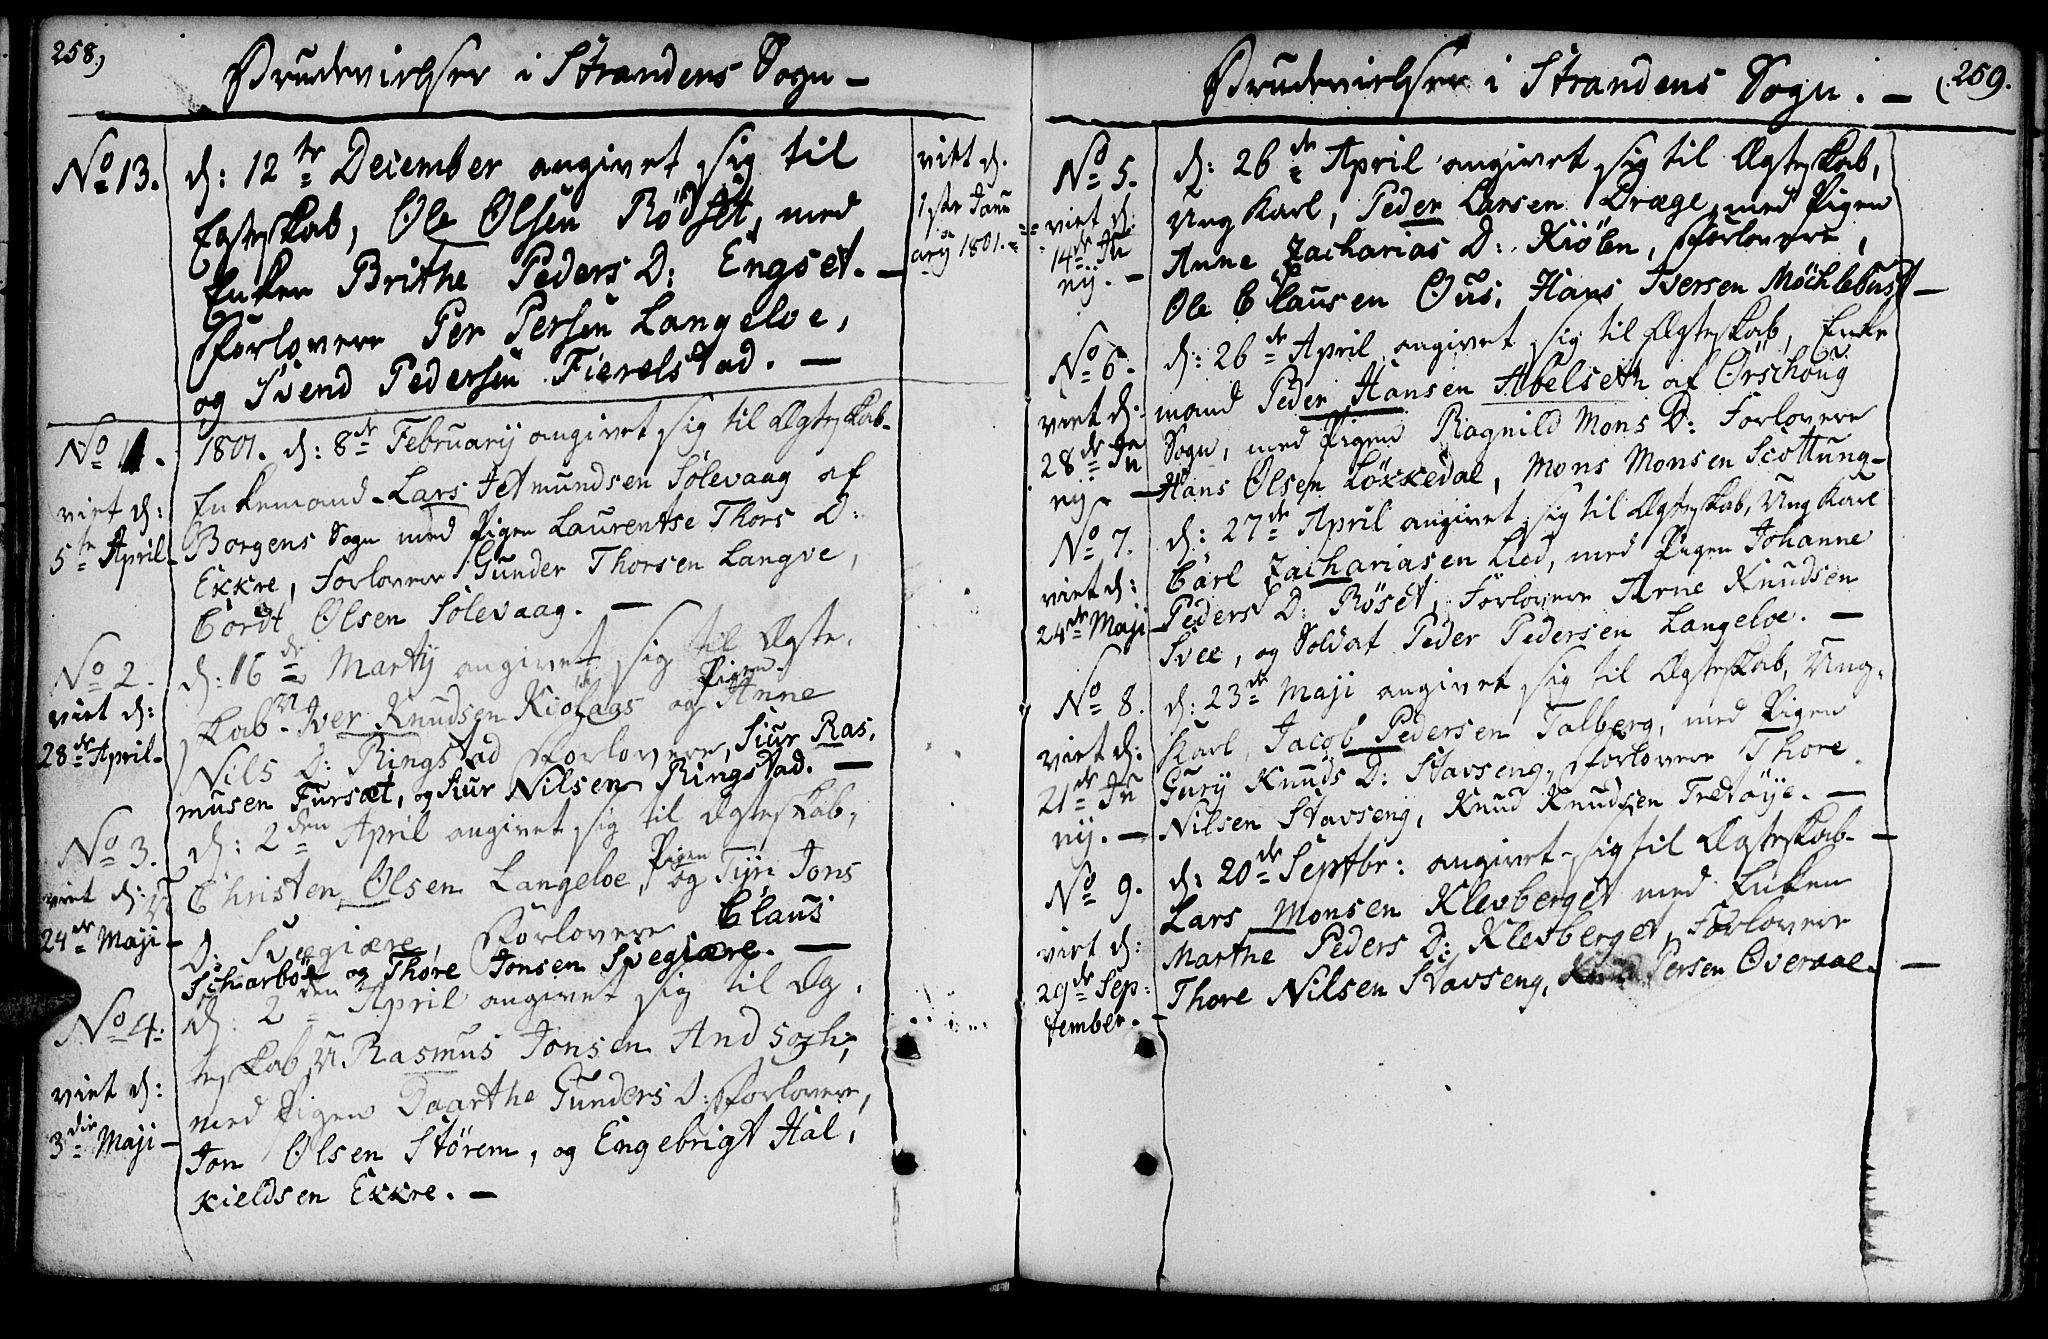 258)
Brudevielser i Strandens Sogn —
No 13.
d: 12te December angivet sig til
Egteskab, Ole Olsen Rödset, med
Enken Brithe Peders D: Engset. —
Forlovere Per Persen Langeloe,
og Svend Pedersen Fierelstad. —
vitt d.
1ste Janu
ary 1801.
No 1.
viet d:
5te April —
1801. d: 8de February angivet sig til Ægteskab-
Enkemand - Lars Jetmundsen Sölevaag af
Borgens Sogn med Pigen Laurentse Thors D:
Ekkre, Forlovere Gunder Thorsen Langve,
Cordt Olsen Sölevaag. —
No 2.
viet d:
28de April -
d: 16de Martij angivet sig til Ægte-
skab Iver Knudsen Kiölaas og Pigen Anne
Nils D: Ringstad Forlovere, Siur Ras-
musen Fursæt, og Siur Nilsen Ringstad. —
No 3.
viet d:
24de Maji —
d: 2den April angivet sig til Ægteskab,
Christen Olsen Langeloe, og Pigen Tyri Jons
D: Svegiære, Forlovere Claus
Scharbö og Thore Jonsen Svegiære. —
No 4.
viet d:
3die Maji —
d: 2den April angivet sig til Æg-
teskab Rasmus Jonsen
med Pigen Daarthe Gunders D: Forlovere,
Jon Olsen Störem, og Engebrigt Hal-
kieldsen Ekkre. —
(259.
Brudevielser i Strandens Sogn. —
No 5.
viet d:
14de Ju
nij. —
d: 26de April angivet sig til Ægteskab,
Ung Karl, Peder Larsen Dræge, med Pigen
Anne Zacharias D: Kiölen, Forlovere,
Ole Clausen Ous, Hans Iversen Möchlebust —
No 6.
viet d:
28de Ju
nij. —
d: 26de April angivet sig til Ægteskab, Enke
mand Peder Hansen Abelseth af Örschoug
Sogn, med Pigen Ragnild Mons D: Forlovere
Hans Olsen Löxkedal, Mons Monsen Scottung —
No 7.
viet d:
24de Maji —
d: 27de April angivet sig til Ægteskab, Ung Karl
Carl Zachariasen Lied, med Pigen Johanne
Peders D: Röset, Forlovere Arne Knudsen
Svee, og Soldat Peder Pedersen Langeloe. —
No 8.
viet d:
21de Ju
nij. —
d: 23de Maji angivet sig til Ægteskab, Ung-
Karl, Jacob Pedersen Talberg, med Pigen
Gury Knuds D: Stavseng, Forlovere Thore
Nilsen Stavseng, Knud Knudsen Tredöye. —
No 9.
viet d:
29de Sep-
tember. —
d: 20de Septbr: angivet sig til Ægteskab —
Lars Monsen Klevberget med Enken
Marthe Peders D: Klevberget, Forlovere
Thore Nilsen Stavseng, Knud Persen Overaae. —